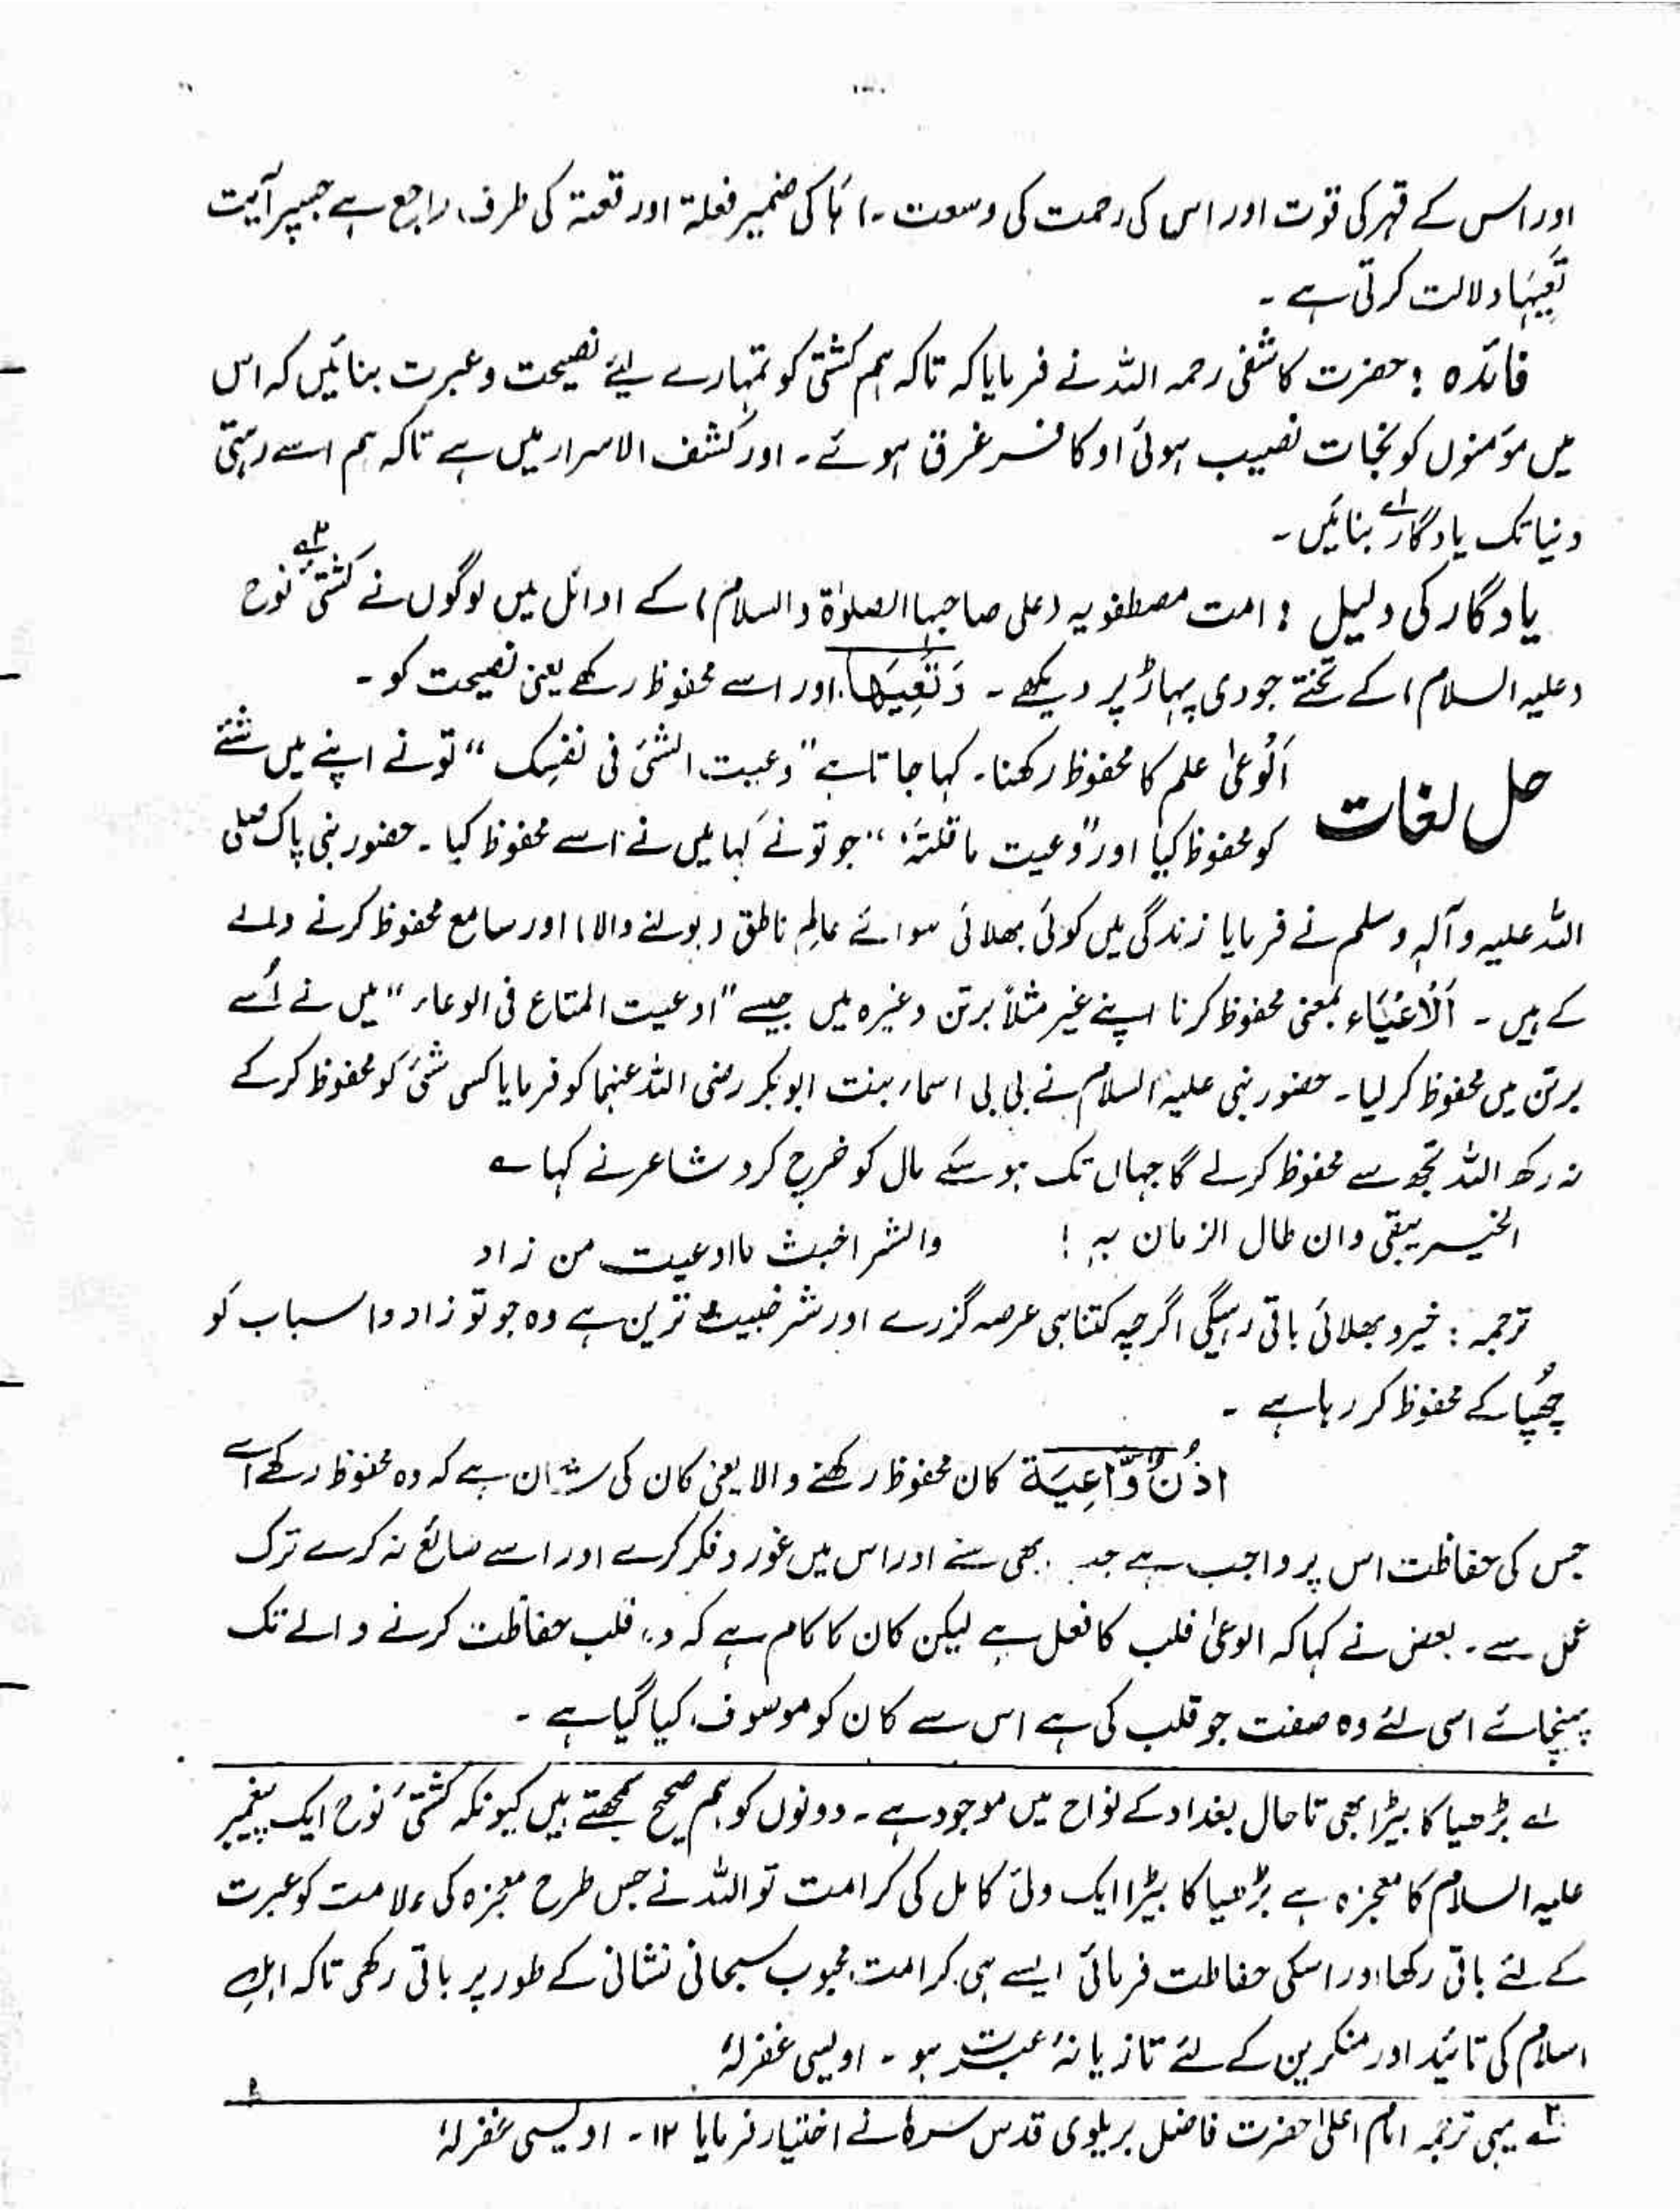 اور اس کے قہر کی قوت اور اس کی رحمت کی وسعت ۔ ا ہَا کی ضمیر فعلۃ اور قصۃ کی طرف راجع ہے جسپر آیت
تَعِیَہَا دلالت کرتی ہے ۔
فائدہ : حضرت کاشفی رحمہ اللہ نے فرمایا کہ تاکہ ہم کشتی کو تمہارے لیئے نصیحت و عبرت بنائیں کہ اس
میں مؤمنوں کو نجات نصیب ہوئی او کافر غرق ہوئے ۔ اور کشف الاسرار میں ہے تاکہ ہم اسے رہتی
دنیا تک یادگار ۱ے بنائیں ۔
یادگار کی دلیل : امت مصطفویہ (علی صاحبہا الصلوٰۃ والسلام) کے اوائل میں لوگوں نے کشتیٔ نوح ۲ے
(علیہ السلام) کے تختے جودی پہاڑ پر دیکھے ۔ وَتَعِیَہَا اور اسے محفوظ رکھے یعنی نصیحت کو ۔
حل لغات اَلْوعیٰ علم کا محفوظ رکھنا ۔ کہا جاتا ہے "وعیت الشیٔ فی نفسِک" تونے اپنے میں شئے
کو محفوظ کیا اور "وعیت ما قلتہٗ" جو تو نے کہا میں نے اسے محفوظ کیا ۔ حضور نبی پاک صلی
اللہ علیہ وآلہٖ وسلم نے فرمایا زندگی میں کوئی بھلائی سوائے عالِم ناطق (بولنے والا) اور سامع محفوظ کرنے والے
کے ہیں ۔ اَلْاَعْیَاء بمعنی محفوظ کرنا اپنے غیر مثلاً برتن وغیرہ میں جیسے "اوعیت المتاع فی الوعاء" میں نے اُسے
برتن میں محفوظ کر لیا ۔ حضور نبی علیہ السلام نے بی بی اسماء بنت ابوبکر رضی اللہ عنہما کو فرمایا کسی شیٔ کو محفوظ کرکے
نہ رکھ اللہ تجھ سے محفوظ کرلے گا جہاں تک ہوسکے مال کو خرچ کرو شاعر نے کہا ے
الخیر یبقی وان طال الزمان بہٖ ! والشر اخبث ما اوعیت من زاد
ترجمہ : خیر و بھلائی باقی رہیگی اگرچہ کتنا ہی عرصہ گزرے اور شر خبیث ترین ہے وہ جو تو زاد و اسباب کو
چُھپا کے محفوظ کر رہا ہے ۔
اُذُنٌ وَّاعِیَۃ کان محفوظ رکھنے والا یعنی کان کی شان ہے کہ وہ محفوظ رکھے اسے
جس کی حفاظت اس پر واجب ہے بھی سنے اور اس میں غور و فکر کرے اور اسے ضائع نہ کرے ترک
عمل سے ۔ بعض نے کہا کہ الوعیٰ قلب کا فعل ہے لیکن کان کا کام ہے کہ وہ قلب حفاظت کرنے والے تک
پہنچائے اسی لئے وہ صفت جو قلب کی ہے اس سے کان کو موصوف کیا گیا ہے ۔
۱ے بڑھیا کا بیڑا بھی تاحال بغداد کے نواح میں موجود ہے ۔ دونوں کو ہم صحیح سمجھتے ہیں کیونکہ کشتیٔ نوح ایک پیغمبر
علیہ السلام کا معجزہ ہے بڑھیا کا بیڑا ایک ولی کامل کی کرامت تو اللہ نے جس طرح معجزہ کی علامت کو عبرت
کے لئے باقی رکھا اور اسکی حفاظت فرمائی ایسے ہی کرامت محبوب سبحانی نشانی کے طور پر باقی رکھی تاکہ اہل
اسلام کی تائید اور منکرین کے لئے تازیانۂ عبرت ہو ۔ اویسی غفرلہٗ
۲ے یہی ترجمہ امام اعلیٰ حضرت فاضل بریلوی قدس سرہٗ نے اختیار فرمایا ۱۲ ۔ اویسی غفرلہٗ